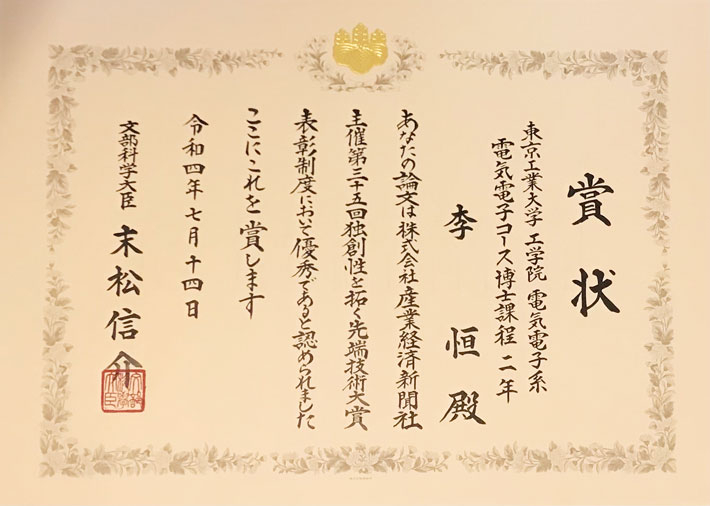 賞状
東京工業大学 工学院 電気電子系
電気電子コース博士課程 二年
李 恒 殿
あなたの論文は株式会社産業経済新聞社
主催第三十五回独創性を拓く先端技術大賞
表彰制度において優秀であると認められました
ここにこれを賞します
令和四年七月十四日
文部科学大臣 末松信介